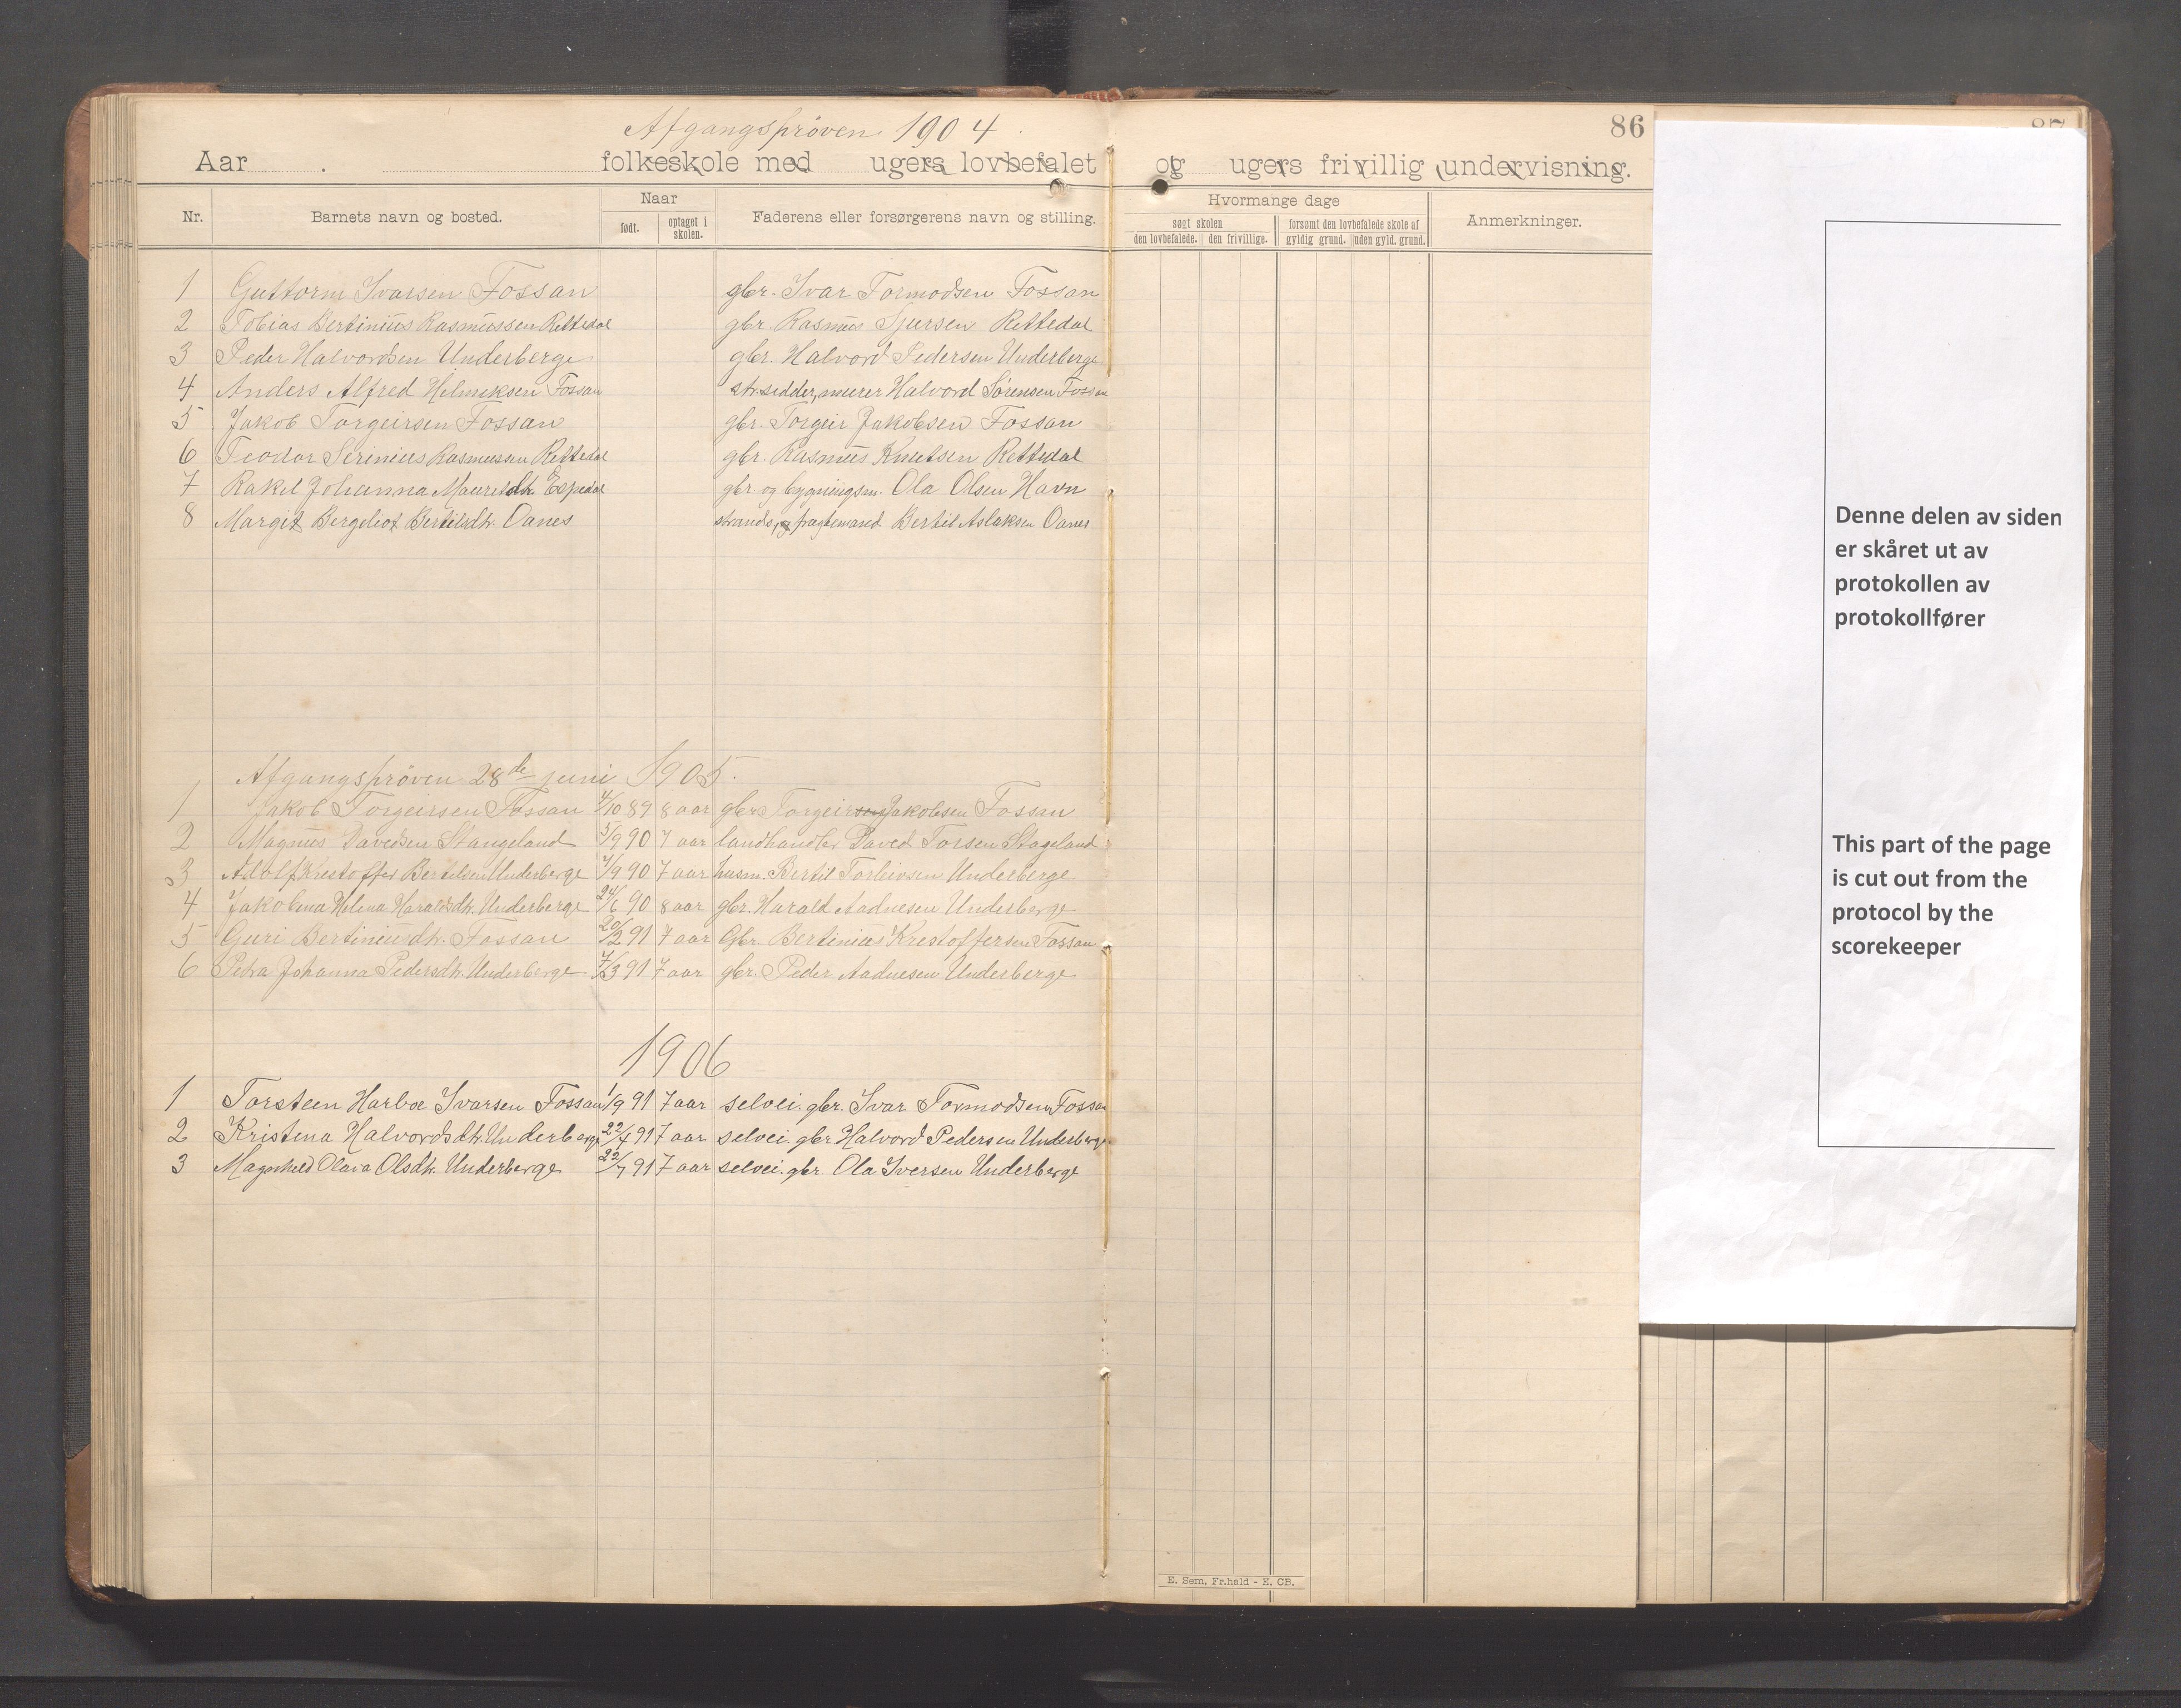 Afgangsprøven 1904
86
Aar . folkeskole med ugers lovbefalet og ugers frivillig undervisning.
Nr. Barnets navn og bosted. Naar Faderens eller forsørgerens navn og stilling. Hvormange dage Anmerkninger.
født. optaget i skolen. søgt skolen forsømt den lovbefalede skole af
den lovbefalede. den frivillige. gyldig grund. uden gyld. grund.
1 Guttorm Ivarsen Fossan gbr. Ivar Tormodsen Fossan
2 Tobias Bertinius Rasmussen Rettedal gbr. Rasmus Sjursen Rettedal
3 Peder Halvordsen Underberge gbr. Halvord Pedersen Underberge
4 Anders Alfred Helmiksen Fossan str.sidder, murer Halvord Sørensen Fossan
5 Jakob Torgeirsen Fossan gbr. Torgeir Jakobsen Fossan
6 Teodor Serinius Rasmussen Rettedal gbr. Rasmus Knutsen Rettedal
7 Rakel Johanna Mauritsdtr. Espedal gbr. og bygningsm. Ola Olsen Havn
8 Margit Bergeliot Bertilsdtr. Oanes strands. og fragtemand Bertil Aslaksen Oanes
Afgangsprøven 28de juni 1905.
1 Jakob Torgeirsen Fossan 4/10 89 8 aar gbr. Torgeirsen Jakobsen Fossan
2 Magnus Davedsen Stangeland 5/9 90 7 aar landhandler Daved Torsen Stageland
3 Adolf Krestoffer Bertilsen Underberge 4/9 90 7 aar husm. Bertil Torleivsen Underberge
4 Jakobina Helena Haraldsdtr. Underberge 24/6 90 8 aar gbr. Harald Aadnesen Underberge
5 Guri Bertiniusdtr. Fossan 20/2 91 7 aar Gbr. Bertinius Krestoffersen Fossan
6 Petra Johanna Pedersdtr. Underberge 7/3 91 7 aar gbr. Peder Aadnesen Underberge
1906
1 Torsteen Harboe Ivarsen Fossan 1/9 91 7 aar selvei. gbr. Ivar Tormodsen Fossan
2 Kristina Halvordsdtr. Underberge 22/4 91 7 aar selvei. gbr. Halvord Pedersen Underberge
3 Magnhild Olava Olsdtr. Underberge 22/7 91 7 aar selvei. gbr. Ola Iversen Underberge
E. Sem, Fr.hald - E. CB.
Denne delen av siden
er skåret ut av
protokollen av
protokollfører
This part of the page
is cut out from the
protocol by the
scorekeeper